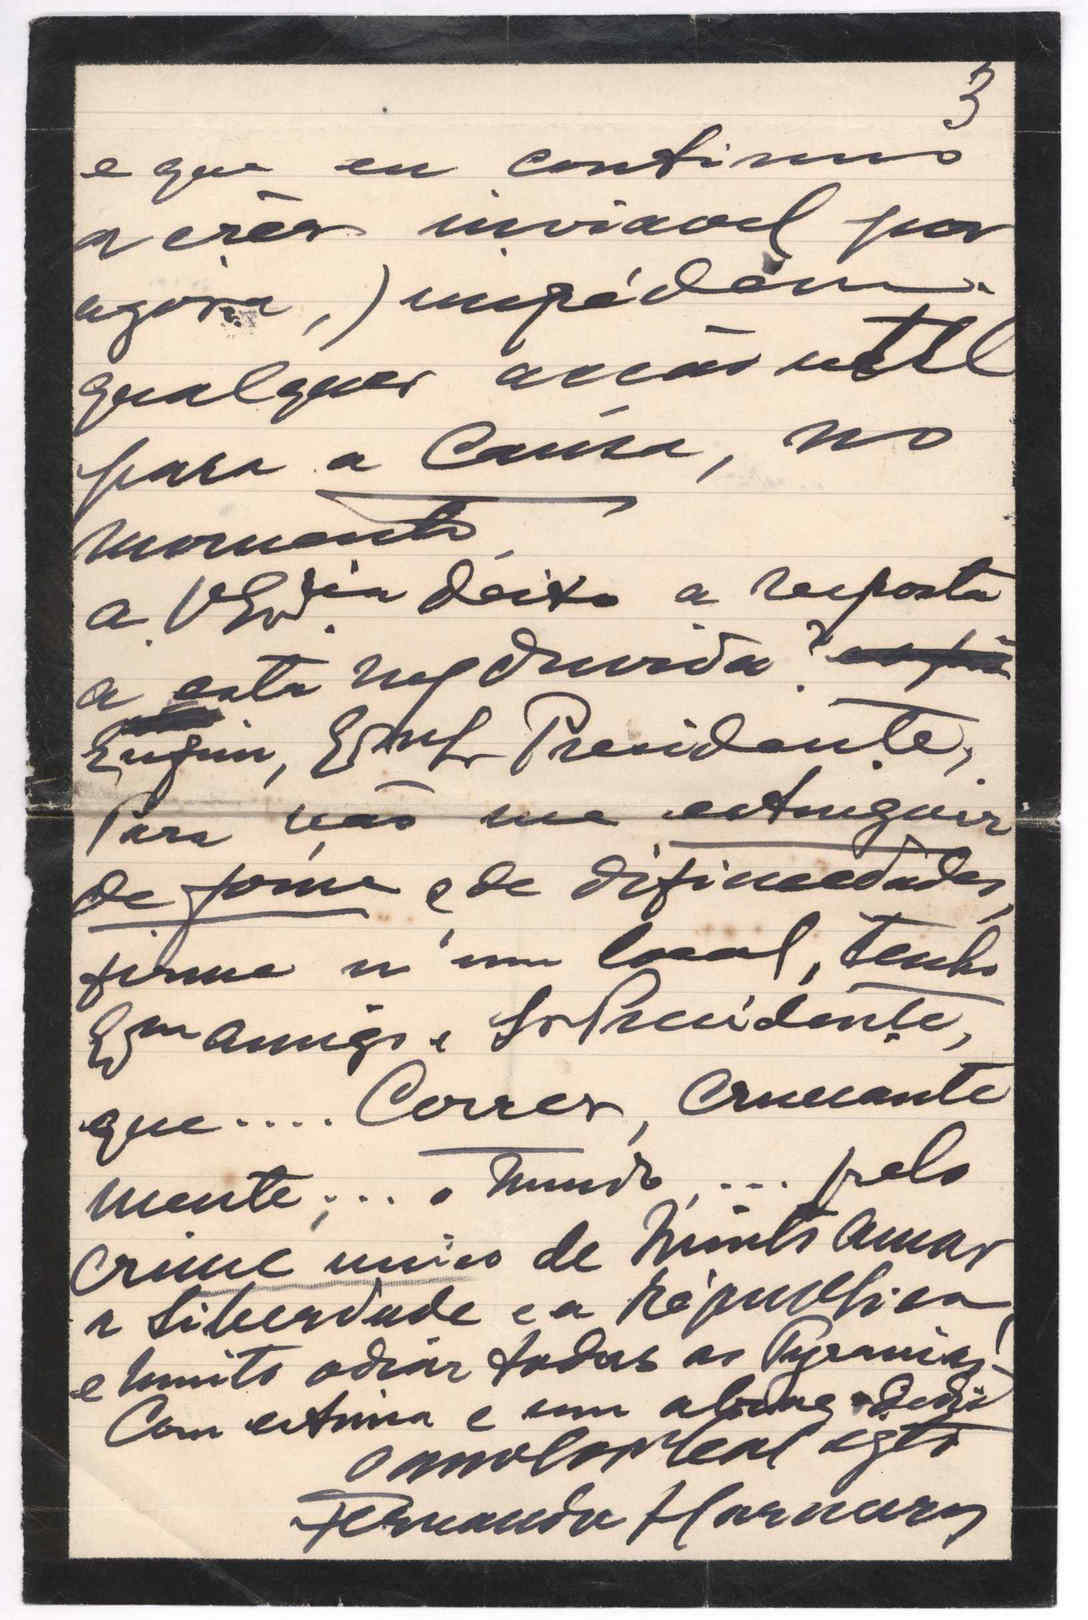 3
e que eu continuo
a crêr inviavel por
agora,) impédem
qualquer acção util
para a Causa, no
momento.
A V. Ex.cia deixo a resposta
a esta mg duvida?
Emfim, Exmo Sr Presidente,
Para não me extinguir
de fome e de dificuldades,
firme n'um local, tenho
Exmo amigo e Sr Presidente,
que.... Correr, cruciante
mente,... o mundo,... pelo
crime unico de muito amar
a Liberdade e a Républica,
e muito odiar todas as Tyranias.
Com estima e um abraço
leal
Fernando